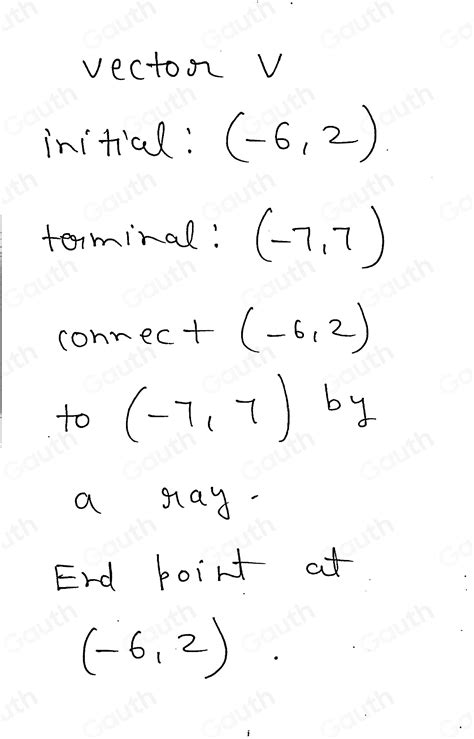 vector V
initial: (-6, 2).
terminal: (-7, 7)
connect (-6, 2)
to (-7, 7) by
a ray.
End point at
(-6, 2).